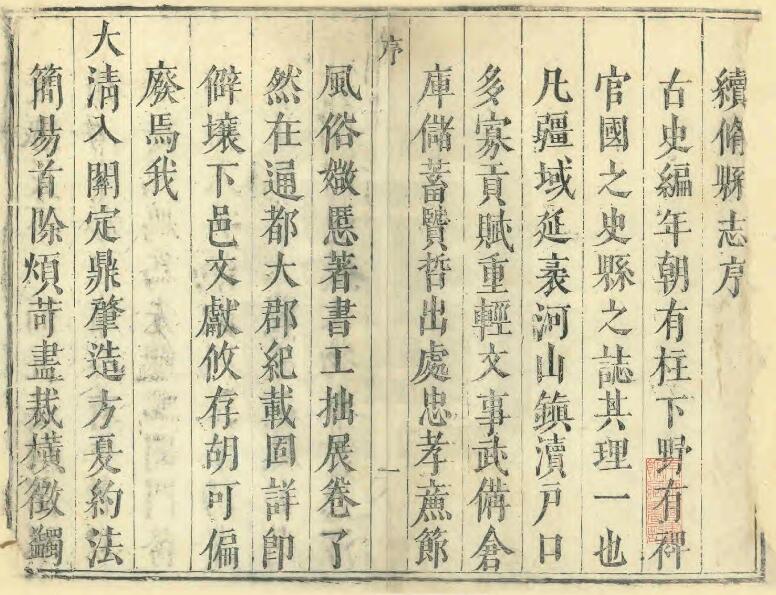 續脩縣志序
古史編年朝有柱下野有稗
官國之史縣之誌其理一也
凡疆域延袤河山鎮瀆戸口
多寡貢賦重輕文事武備倉
庫儲蓄賢哲出處忠孝亷節
序
一
風俗媺慝著書工拙展卷了
然在通都大郡紀載固詳卽
僻壤下邑文獻攸存胡可偏
廢焉我
大淸入關定鼎肇造方夏約法
簡昜首除煩苛盡裁橫徵蠲